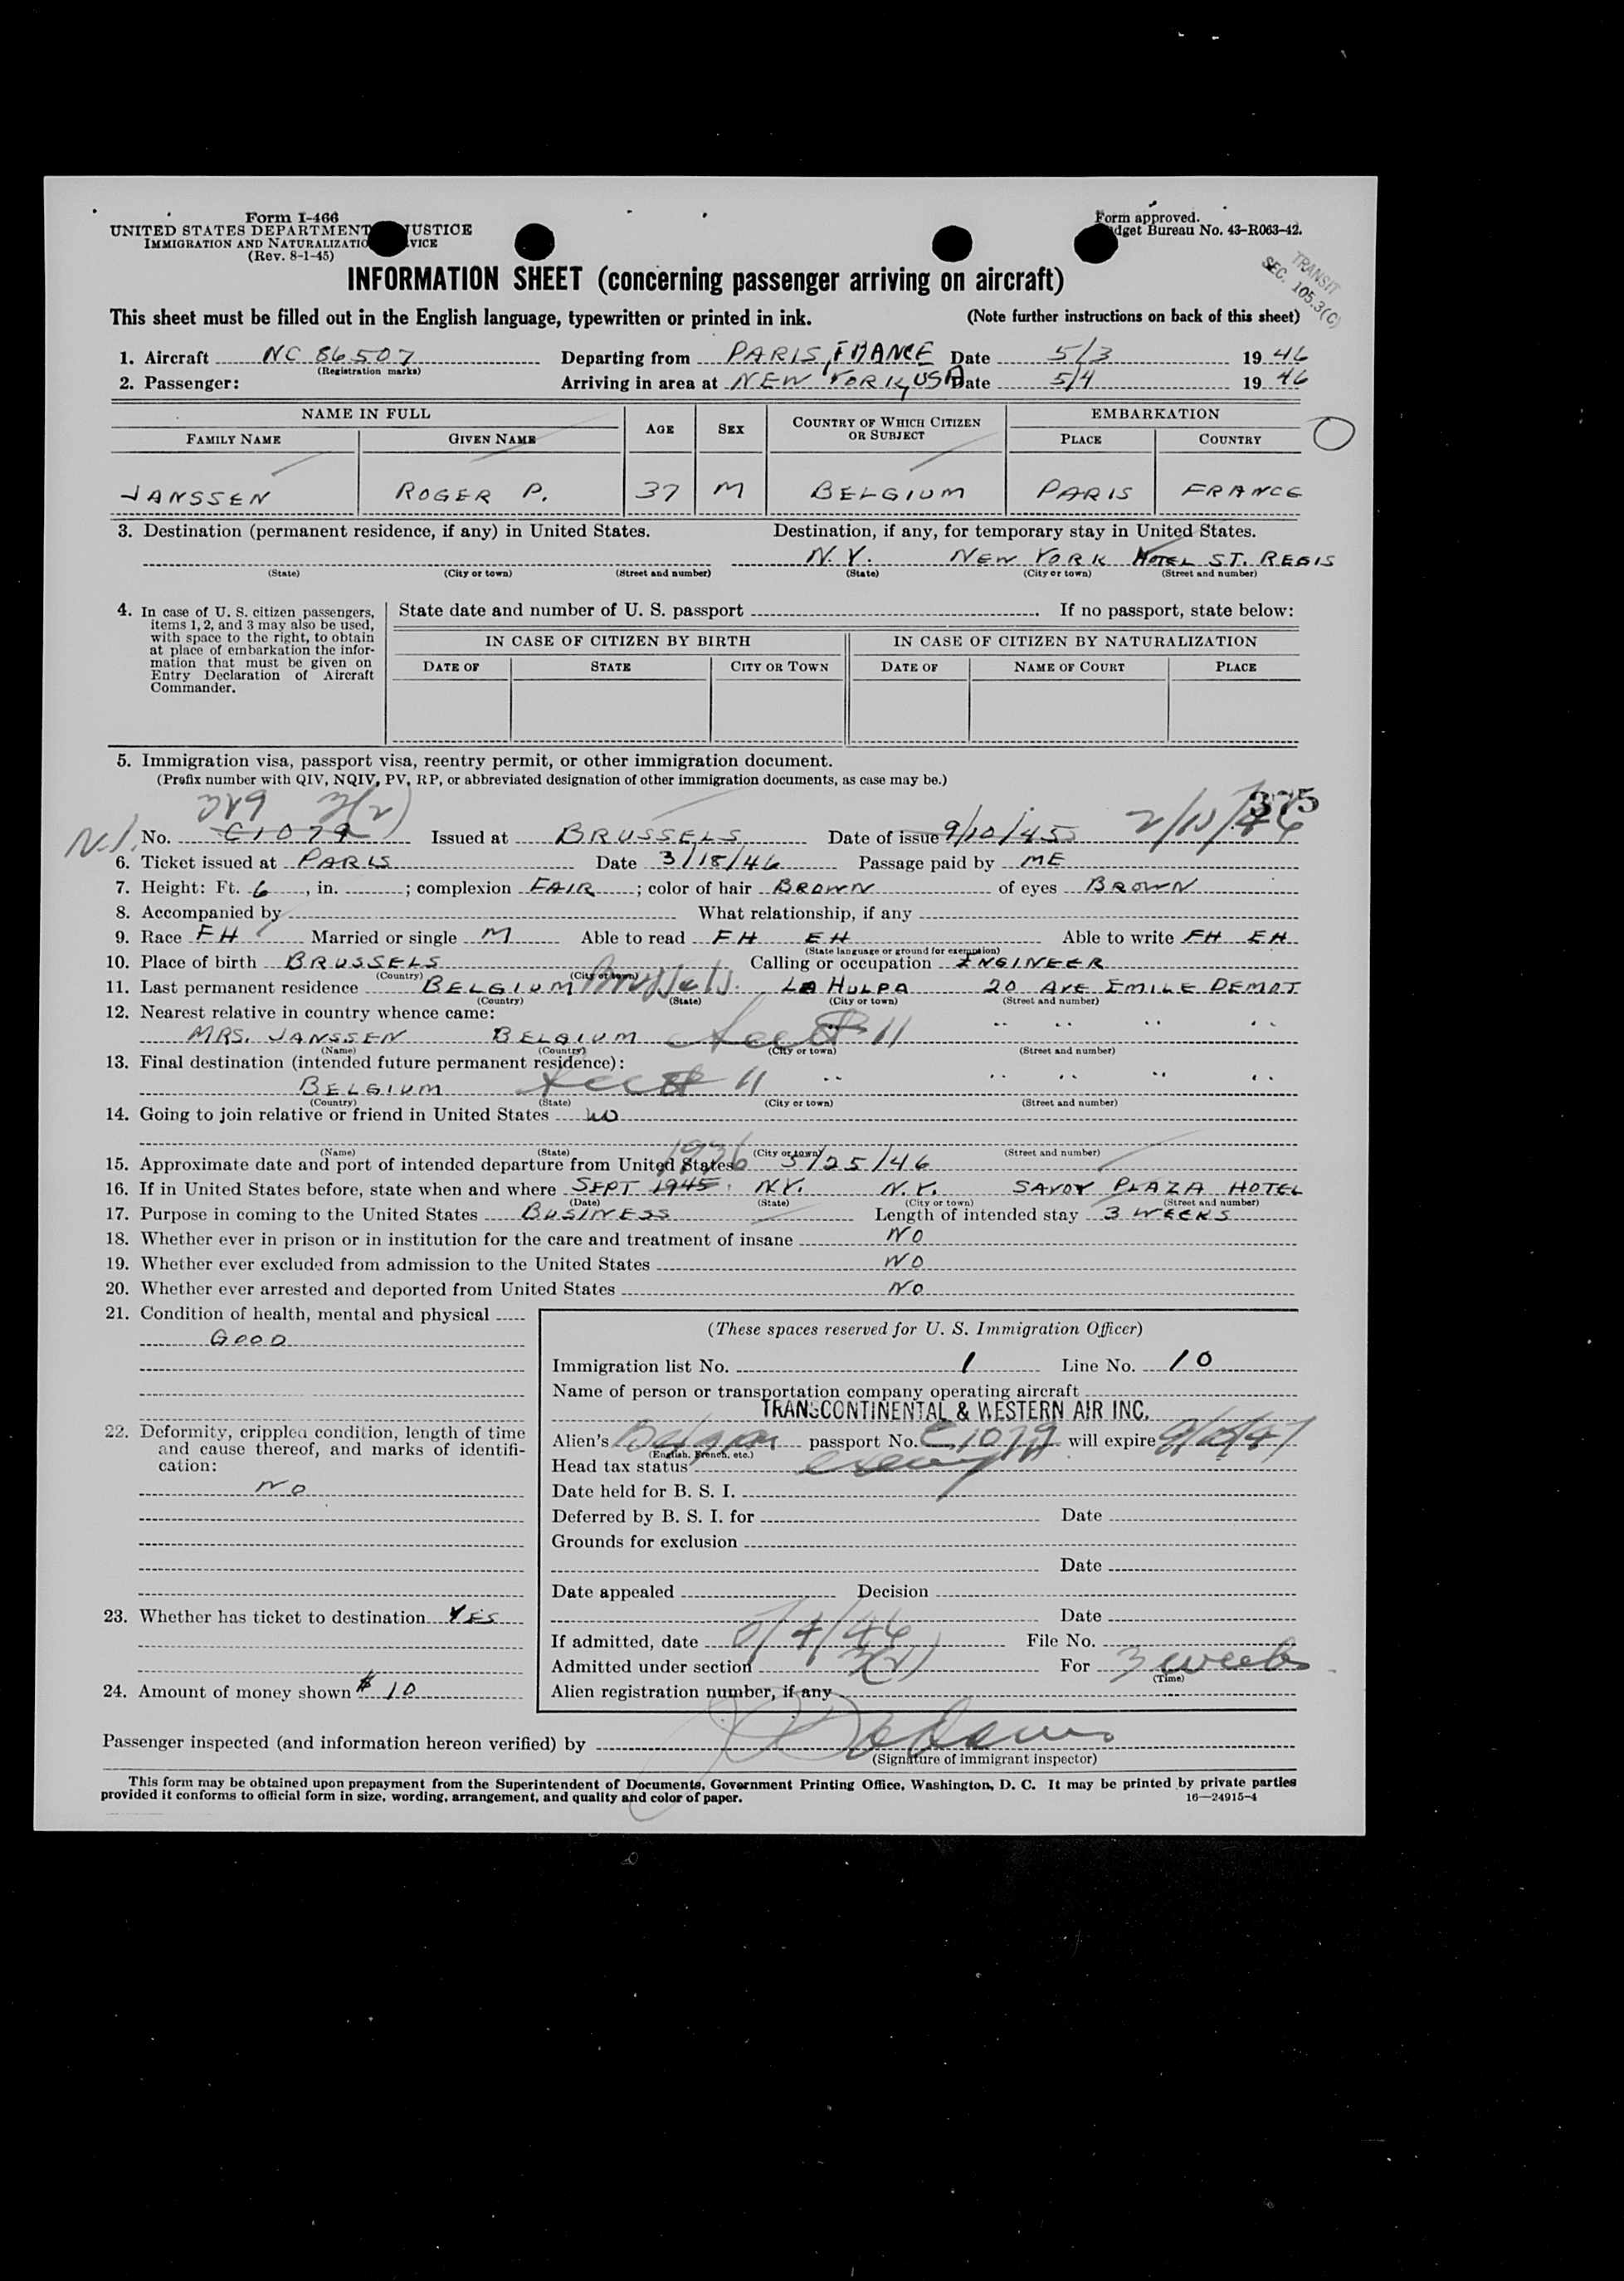 Form I-466
UNITED STATES DEPARTMENT USTICE
IMMIGRATION AND NATURALIZATIO VICE
(Rev. 8-1-45)
Form approved.
dget Bureau No. 43-R063-42.
TRANSIT
SEC. 105.3(C)
INFORMATION SHEET (concerning passenger arriving on aircraft)
This sheet must be filled out in the English language, typewritten or printed in ink. (Note further instructions on back of this sheet)
1. Aircraft NC 86507 Departing from PARIS, FRANCE Date 5/3 1946
(Registration marks)
2. Passenger: Arriving in area at NEW YORK, USA Date 5/4 1946
NAME IN FULL AGE SEX COUNTRY OF WHICH CITIZEN OR SUBJECT EMBARKATION
FAMILY NAME GIVEN NAME PLACE COUNTRY
JANSSEN ROGER P. 37 M BELGIUM PARIS FRANCE
3. Destination (permanent residence, if any) in United States. Destination, if any, for temporary stay in United States.
N.Y. NEW YORK HOTEL ST. REGIS
(State) (City or town) (Street and number) (State) (City or town) (Street and number)
4. In case of U. S. citizen passengers, items 1, 2, and 3 may also be used, with space to the right, to obtain at place of embarkation the information that must be given on Entry Declaration of Aircraft Commander.
State date and number of U. S. passport . If no passport, state below:
IN CASE OF CITIZEN BY BIRTH IN CASE OF CITIZEN BY NATURALIZATION
DATE OF STATE CITY OR TOWN DATE OF NAME OF COURT PLACE
5. Immigration visa, passport visa, reentry permit, or other immigration document.
(Prefix number with QIV, NQIV, PV, RP, or abbreviated designation of other immigration documents, as case may be.)
3(2) 375
No. C1079 Issued at BRUSSELS Date of issue 9/10/45
6. Ticket issued at PARIS Date 3/18/46 Passage paid by ME
7. Height: Ft. 6, in. ; complexion FAIR; color of hair BROWN of eyes BROWN
8. Accompanied by What relationship, if any
9. Race FH Married or single M Able to read FH EH Able to write FH EH
(State language or ground for exemption)
10. Place of birth BRUSSELS Calling or occupation INGINEER
(Country) (City or town)
11. Last permanent residence BELGIUM Brussels LA HULPA 20 AVE EMILE DEMOT
(Country) (State) (City or town) (Street and number)
12. Nearest relative in country whence came:
MRS. JANSSEN BELGIUM 11
(Name) (Country) (City or town) (Street and number)
13. Final destination (intended future permanent residence):
BELGIUM 11
(Country) (State) (City or town) (Street and number)
14. Going to join relative or friend in United States NO
(Name) (State) (City or town) (Street and number)
15. Approximate date and port of intended departure from United States 5/25/46
1936
16. If in United States before, state when and where SEPT 1945. N.Y. N.Y. SAVOY PLAZA HOTEL
(Date) (State) (City or town) (Street and number)
17. Purpose in coming to the United States BUSINESS Length of intended stay 3 WEEKS
18. Whether ever in prison or in institution for the care and treatment of insane NO
19. Whether ever excluded from admission to the United States NO
20. Whether ever arrested and deported from United States NO
21. Condition of health, mental and physical
GOOD
22. Deformity, crippled condition, length of time and cause thereof, and marks of identification:
NO
23. Whether has ticket to destination YES
24. Amount of money shown $10
(These spaces reserved for U. S. Immigration Officer)
Immigration list No. 1 Line No. 10
Name of person or transportation company operating aircraft
TRANSCONTINENTAL & WESTERN AIR INC.
Alien's Belgian passport No. C1079 will expire 9/10/47
(English, French, etc.)
Head tax status exempt
Date held for B. S. I.
Deferred by B. S. I. for Date
Grounds for exclusion
Date
Date appealed Decision
Date
If admitted, date 5/4/46 File No.
Admitted under section 3(2) For 3 weeks
(Time)
Alien registration number, if any
Passenger inspected (and information hereon verified) by
(Signature of immigrant inspector)
This form may be obtained upon prepayment from the Superintendent of Documents, Government Printing Office, Washington, D. C. It may be printed by private parties
provided it conforms to official form in size, wording, arrangement, and quality and color of paper. 16—24915-4